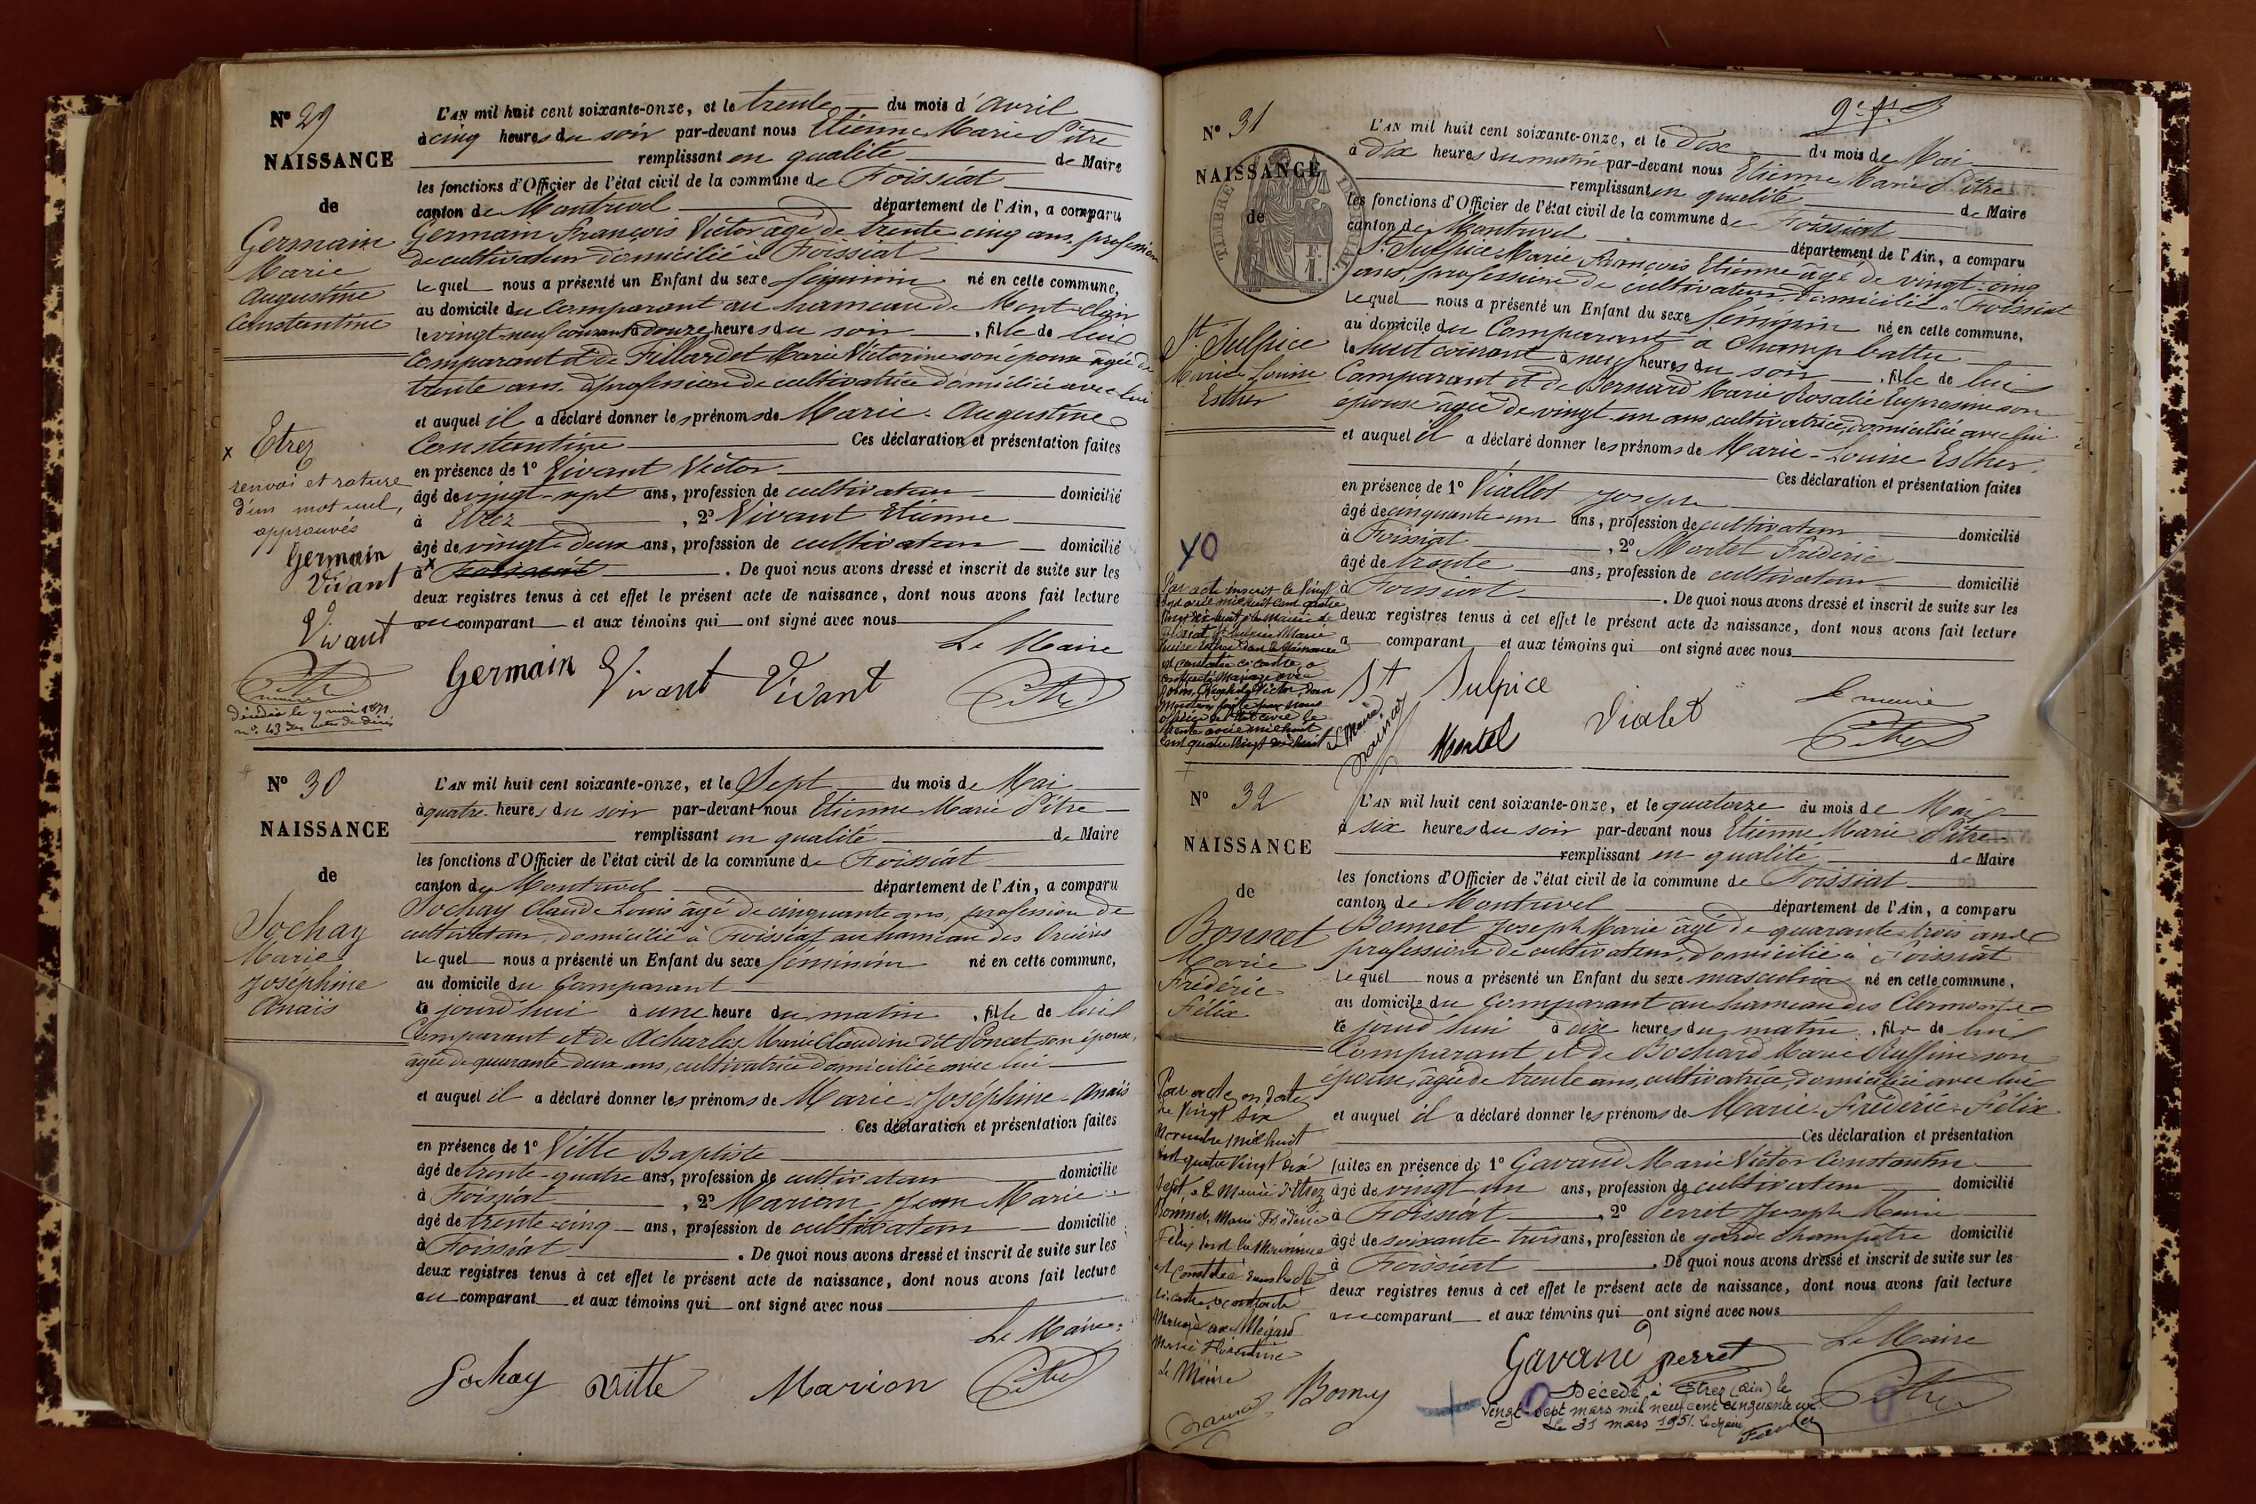 Nº 29
NAISSANCE
de
Germain
Marie
Augustine
Constantine
x Etrez
renvoi et rature
d'un mot nul,
approuvés
Germain
Vivant
Vivant
Pitre
décédée le 9 mai 1871
nº 43 des actes de décès
L'AN mil huit cent soixante-onze, et le trente du mois d'avril
à cinq heures du soir par-devant nous Etienne Marie Pitre
remplissant en qualité de Maire
les fonctions d'Officier de l'état civil de la commune de Foissiat
canton de Montrevel département de l'Ain, a comparu
Germain François Victor âgé de trente cinq ans, profession
de cultivateur domicilié à Foissiat
lequel nous a présenté un Enfant du sexe féminin né en cette commune,
au domicile du comparant au hameau de Mont-clair
le vingt-neuf courant à douze heures du soir, fille de lui
comparant et de Fillardet Marie Victorine son épouse âgée de
trente ans, profession de cultivatrice domiciliée avec lui
et auquel il a déclaré donner les prénoms de Marie-Augustine
Constantine Ces déclaration et présentation faites
en présence de 1º Vivant Victor
âgé de vingt-sept ans, profession de cultivateur domicilié
à Etrez, 2º Vivant Etienne
âgé de vingt-deux ans, profession de cultivateur domicilié
à x Foissiat. De quoi nous avons dressé et inscrit de suite sur les
deux registres tenus à cet effet le présent acte de naissance, dont nous avons fait lecture
au comparant et aux témoins qui ont signé avec nous
Le Maire
Germain Vivant Vivant Pitre
Nº 30
NAISSANCE
de
Sochay
Marie
Joséphine
Anaïs
L'AN mil huit cent soixante-onze, et le Sept du mois de Mai
à quatre heures du soir par-devant nous Etienne Marie Pitre
remplissant en qualité de Maire
les fonctions d'Officier de l'état civil de la commune de Foissiat
canton de Montrevel département de l'Ain, a comparu
Sochay Claude Louis âgé de cinquante ans, profession de
cultivateur, domicilié à Foissiat au hameau des
lequel nous a présenté un Enfant du sexe féminin né en cette commune,
au domicile du Comparant
ce jourd'hui à une heure du matin, fille de lui
Comparant et de Acharles Marie Claudine dit Poncet son épouse,
âgée de quarante deux ans, cultivatrice domiciliée avec lui
et auquel il a déclaré donner les prénoms de Marie-Joséphine-Anaïs
Ces déclaration et présentation faites
en présence de 1º Ville Baptiste
âgé de trente-quatre ans, profession de cultivateur domicilié
à Foissiat, 2º Marion Jean Marie
âgé de trente-cinq ans, profession de cultivateur domicilié
à Foissiat. De quoi nous avons dressé et inscrit de suite sur les
deux registres tenus à cet effet le présent acte de naissance, dont nous avons fait lecture
au comparant et aux témoins qui ont signé avec nous
Le Maire
Sochay Ville Marion Pitre
Nº 31
NAISSANCE
de
TIMBRE IMPÉRIAL
St Sulpice
Marie Louise
Esther
Par acte inscrit le vingt
avril mil huit cent quatre
vingt dix huit à la Mairie de
Foissiat St Sulpice Marie
Louise Esther dont la Naissance
est constatée ci contre, a
contracté Mariage avec
Victor, dont
mention faite par nous
officier de l'état civil le
trente avril mil huit
cent quatre vingt dix huit
Le Maire
L'AN mil huit cent soixante-onze, et le dix du mois de Mai
à dix heures du matin par-devant nous Etienne Marie Pitre
remplissant en qualité de Maire
les fonctions d'Officier de l'état civil de la commune de Foissiat
canton de Montrevel département de l'Ain, a comparu
St Sulpice Marie François Etienne âgé de vingt-cinq
ans, profession de cultivateur, domicilié à Foissiat
lequel nous a présenté un Enfant du sexe féminin né en cette commune,
au domicile du Comparant à Champ battu
le huit courant à neuf heures du soir, fille de lui
Comparant et de Bernard Marie Rosalie Euprosine son
épouse âgée de vingt un ans, cultivatrice, domiciliée avec lui
et auquel il a déclaré donner les prénoms de Marie-Louise Esther.
Ces déclaration et présentation faites
en présence de 1º Viallet Joseph
âgé de cinquante-un ans, profession de cultivateur domicilié
à Foissiat, 2º Mortel Frédéric
âgé de trente ans, profession de cultivateur domicilié
à Foissiat. De quoi nous avons dressé et inscrit de suite sur les
deux registres tenus à cet effet le présent acte de naissance, dont nous avons fait lecture
a comparant et aux témoins qui ont signé avec nous
St Sulpice Vialet Le maire
Mortel Pitre
Nº 32
NAISSANCE
de
Bonnet
Marie
Frédéric
Félix
Par acte en date
de vingt six
Novembre mil huit
cent quatre vingt dix
sept, à la Mairie d'Etrez
Bonnet, Marie Frédéric
Félix dont la Naissance
est constatée
ci-contre, a contracté
Mariage avec Mégard
Marie Florentine
Le Maire
L'AN mil huit cent soixante-onze, et le quatorze du mois de Mai
à six heures du soir par-devant nous Etienne Marie Pitre
remplissant en qualité de Maire
les fonctions d'Officier de l'état civil de la commune de Foissiat
canton de Montrevel département de l'Ain, a comparu
Bonnet Joseph Marie âgé de quarante-trois ans
profession de cultivateur, domicilié à Foissiat
lequel nous a présenté un Enfant du sexe masculin né en cette commune,
au domicile du Comparant au hameau des Clermonts
ce jourd'hui à dix heures du matin, fils de lui
Comparant et de Bochard Marie Ruffine son
épouse, âgée de trente ans, cultivatrice, domiciliée avec lui
et auquel il a déclaré donner les prénoms de Marie-Frédéric-Félix
Ces déclaration et présentation
faites en présence de 1º Gavand Marie Victor Constantin
âgé de vingt-un ans, profession de cultivateur domicilié
à Foissiat, 2º Perret Joseph Marie
âgé de soixante-trois ans, profession de garde champêtre domicilié
à Foissiat. De quoi nous avons dressé et inscrit de suite sur les
deux registres tenus à cet effet le présent acte de naissance, dont nous avons fait lecture
au comparant et aux témoins qui ont signé avec nous
Le Maire
Gavand perret Pitre
Décédé à Etrez (Ain) le
vingt-sept mars mil neuf cent cinquante un
Le 31 mars 1951. Le Maire